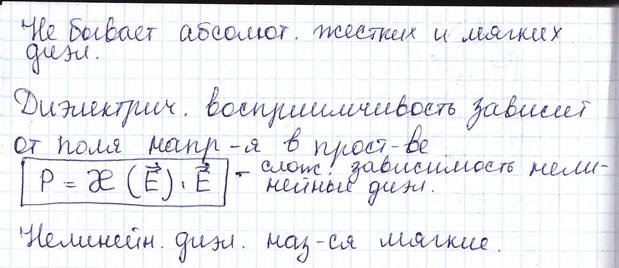 Не бывает абсолют. жестких и мягких
диэл.
Диэлектрич. восприимчивость зависит
от поля напр-я в прост-ве
P = æ (E⃗) · E⃗ - слож. зависимость нели-
нейные диэл.
Нелинейн. диэл. наз-ся мягкие.